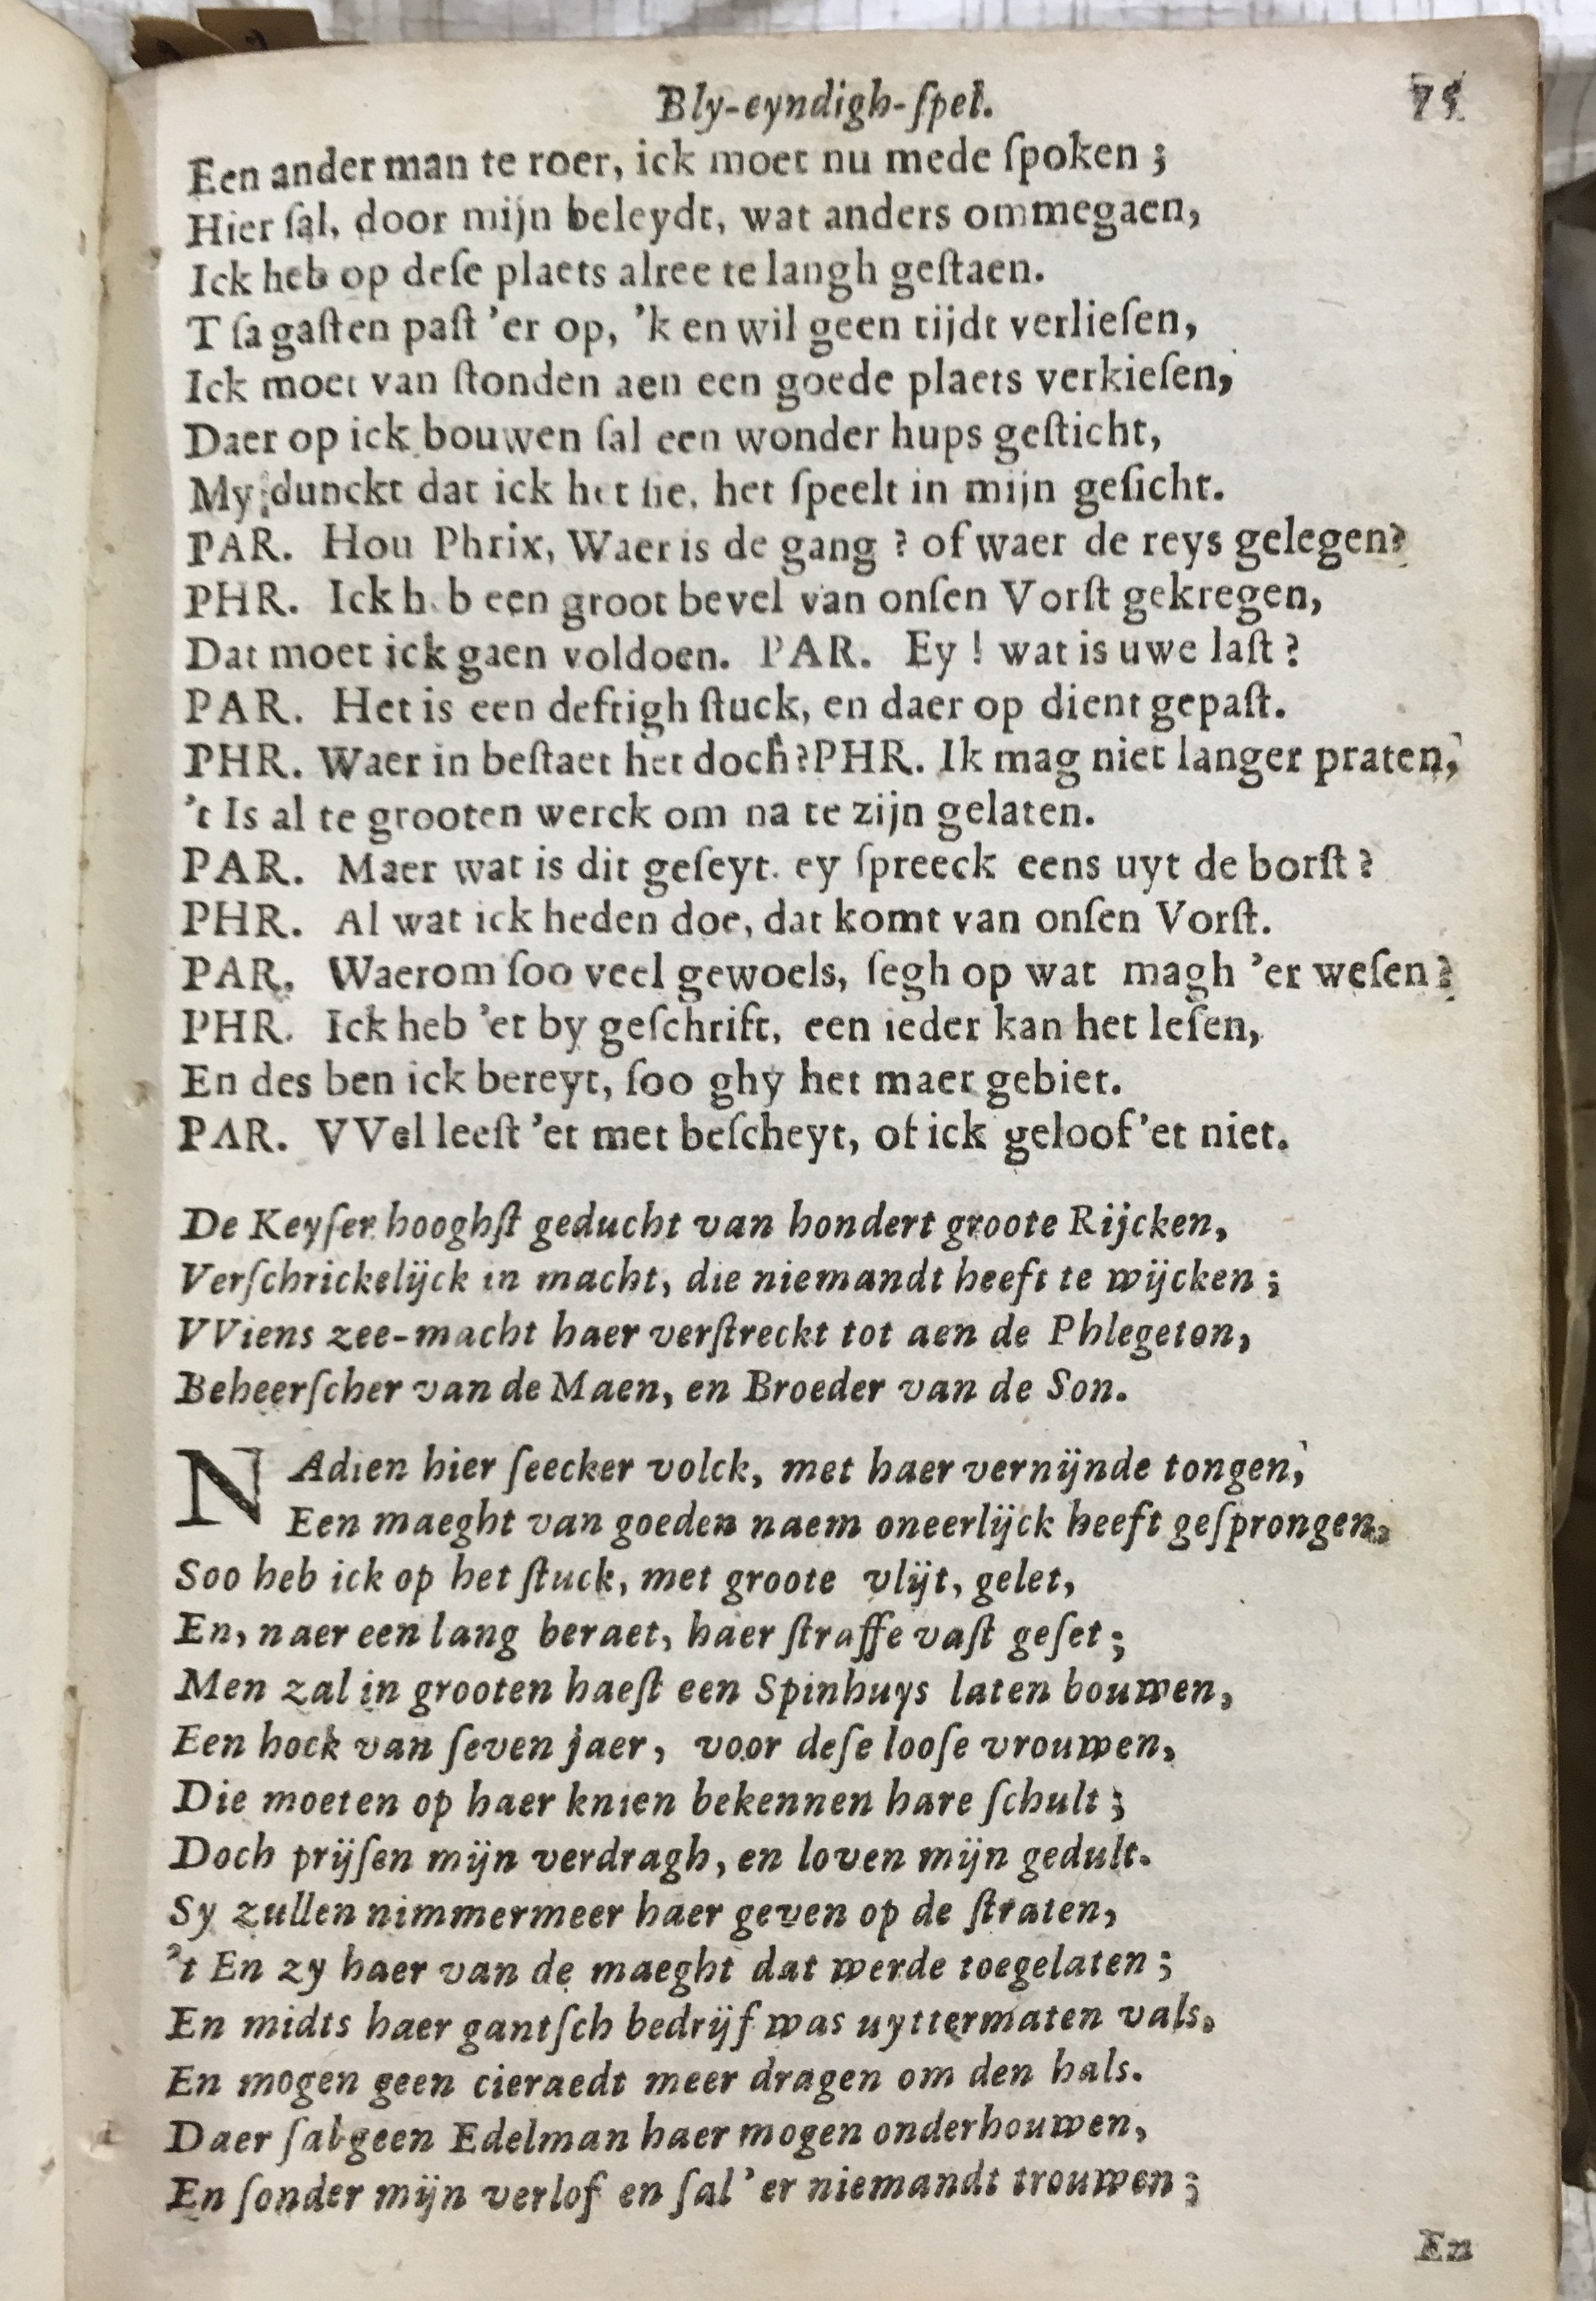 Bly-eyndigh-ſpel. 75
Een ander man te roer, ick moet nu mede ſpoken;
Hier ſal, door mijn beleydt, wat anders ommegaen,
Ick heb op deſe plaets alree te langh geſtaen.
T ſa gaſten paſt 'er op, 'k en wil geen tijdt verlieſen,
Ick moet van ſtonden aen een goede plaets verkieſen,
Daer op ick bouwen ſal een wonder hups geſticht,
My dunckt dat ick het ſie, het ſpeelt in mijn geſicht.
PAR. Hou Phrix, Waer is de gang? of waer de reys gelegen?
PHR. Ick heb een groot bevel van onſen Vorſt gekregen,
Dat moet ick gaen voldoen. PAR. Ey! wat is uwe laſt?
PAR. Het is een deftigh ſtuck, en daer op dient gepaſt.
PHR. Waer in beſtaet het doch? PHR. Ik mag niet langer praten,
't Is al te grooten werck om na te zijn gelaten.
PAR. Maer wat is dit geſeyt. ey ſpreeck eens uyt de borſt?
PHR. Al wat ick heden doe, dat komt van onſen Vorſt.
PAR. Waerom ſoo veel gewoels, ſegh op wat magh 'er weſen?
PHR. Ick heb 'et by geſchrift, een ieder kan het leſen,
En des ben ick bereyt, ſoo ghy het maer gebiet.
PAR. VVel leeſt 'et met beſcheyt, of ick geloof 'et niet.
De Keyſer hooghſt geducht van hondert groote Rijcken,
Verſchrickelijck in macht, die niemandt heeft te wijcken;
VViens zee-macht haer verſtreckt tot aen de Phlegeton,
Beheerſcher van de Maen, en Broeder van de Son.
NAdien hier ſeecker volck, met haer vernijnde tongen,
Een maeght van goeden naem oneerlijck heeft geſprongen,
Soo heb ick op het ſtuck, met groote vlijt, gelet,
En, naer een lang beraet, haer ſtraffe vaſt geſet;
Men zal in grooten haeſt een Spinhuys laten bouwen,
Een hock van ſeven jaer, voor deſe looſe vrouwen,
Die moeten op haer knien bekennen hare ſchult;
Doch prijſen mijn verdragh, en loven mijn gedult.
Sy zullen nimmermeer haer geven op de ſtraten,
't En zy haer van de maeght dat werde toegelaten;
En midts haer gantſch bedrijf was uyttermaten vals,
En mogen geen cieraedt meer dragen om den hals.
Daer ſal geen Edelman haer mogen onderhouwen,
En ſonder mijn verlof en ſal 'er niemandt trouwen;
En